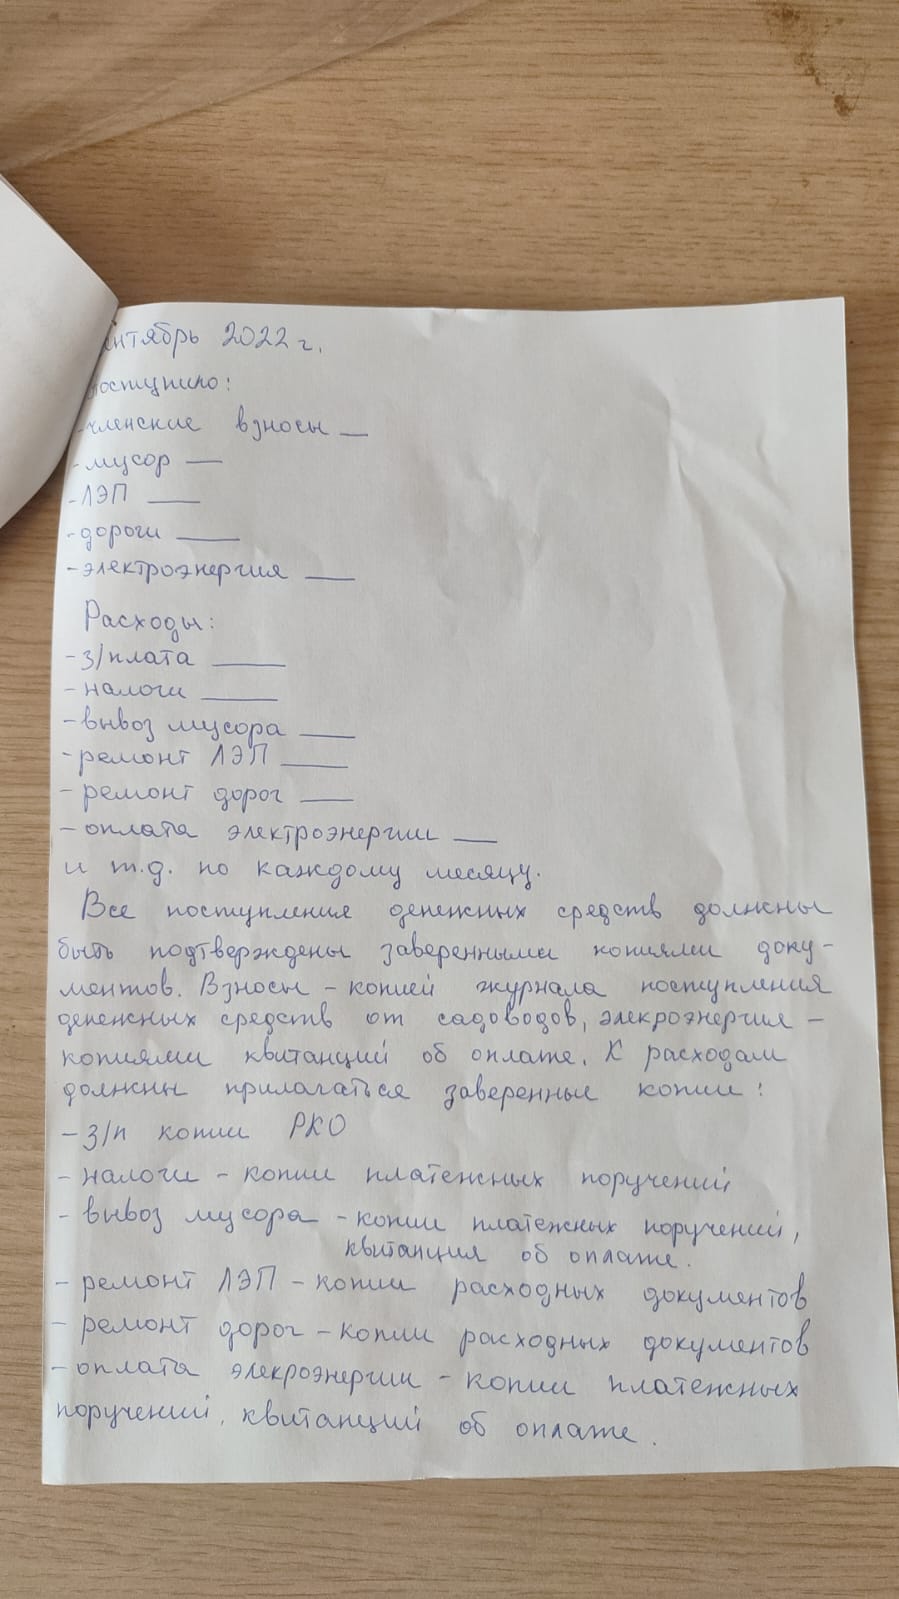 сентябрь 2022 г.
поступило:
- членские взносы __
- мусор __
- ЛЭП ___
- дороги ___
- электроэнергия ___
Расходы:
- з/плата ____
- налоги ____
- вывоз мусора ___
- ремонт ЛЭП ____
- ремонт дорог ___
- оплата электроэнергии __
и т.д. по каждому месяцу.
Все поступления денежных средств должны
быть подтверждены заверенными копиями доку-
ментов. Взносы - копией журнала поступления
денежных средств от садоводов, элекроэнергия -
копиями квитанций об оплате. К расходам
должны прилагаться заверенные копии:
- з/п копии РКО
- налоги - копии платежных поручений
- вывоз мусора - копии платежных поручений,
квитанция об оплате.
- ремонт ЛЭП - копии расходных документов
- ремонт дорог - копии расходных документов
- оплата элекроэнергии - копии платежных
поручений, квитанций об оплате.